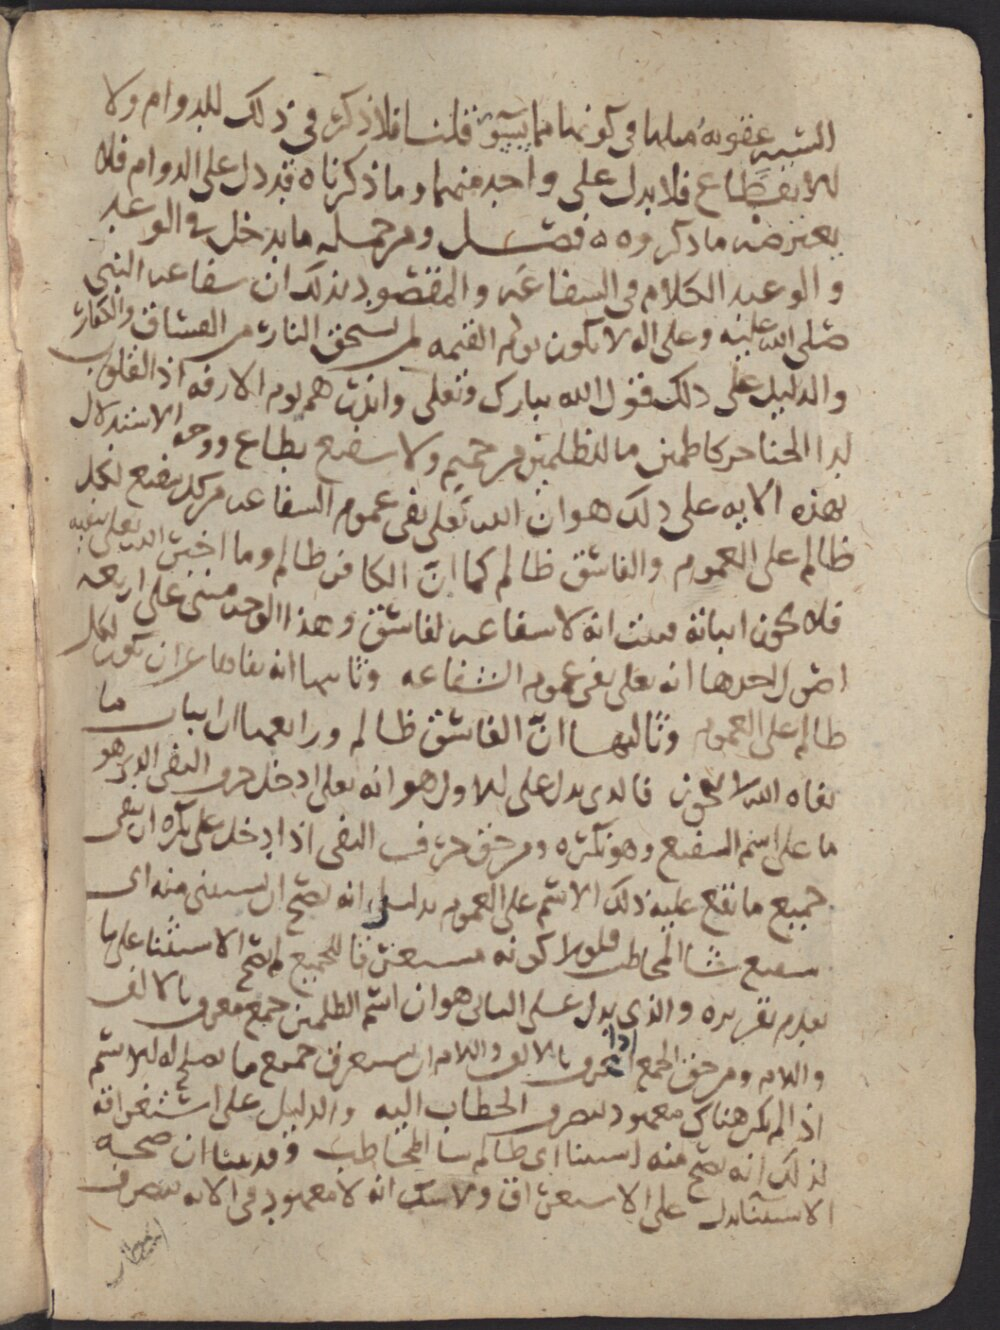 السنه عقوبه مثلها في كونها مما يسوء قلنا فلا ذكر في ذلك للدوام ولا
للانقطاع فلا يدل على واحد منهما وما ذكرناه قد دل على الدوام فلا
يعترضه ما ذكروه ه فصل ومن جمله ما يدخل في الوعد
والوعيد الكلام في السفاعه والمقصود بذلك ان سفاعه النبي
صلى الله عليه وعلى اله لا تكون يوم القيمه لمن يستحق النار من الفساق والكفار
والدليل على ذلك قول الله تبارك وتعلى وانذرهم يوم الازفه اذ القلوب
لدا الحناجر كاظمين ما للظلمين من حميم ولا سفيع يطاع ووجه الاستدلال
بهذه الايه على ذلك هو ان الله تعلى نفى عموم السفاعه من كل سفيع لكل
ظالم على العموم والفاسق ظالم كما ان الكافر ظالم وما اخبر الله تعلى بنفيه
فلا يجوز اثباته فثبت انه لا سفاعه لفاسق وهذا الوجه مبني على اربعه
اصول احدها انه تعلى نفى عموم الشفاعه وثانيها انه نفاها عن ان تكون لكل
ظالم على العموم وثالثها ان الفاسق ظالم ورابعها ان اثبات ما
نفاه الله لا يجوز فالذي يدل على الاول هو انه تعلى ادخل حرف النفي الذي هو
ما على اسم السفيع وهو نكره ومن حق حرف النفي اذا ادخل على نكره ان ينفي
جميع ما يقع عليه ذلك الاسم على العموم بدليل انه يصح ان يستثنى منه اي
سفيع شا المخاطب فلولا كونه مستغرقا للجميع لم يصح الاستثنا على ما
تقدم تقريره والذي يدل على الثاني هو ان اسم الظلمين جمع معرف بالالف
واللام ومن حق الجمع اذا عرف بالالف واللام ان يستغرق جميع ما يصلح له الاسم
اذا لم يكن هناك معهود ينصرف الخطاب اليه والدليل على استغراقه
لذلك انه يصح منه استثنا اي ظالم شا المخاطب وقد بينا ان صحه
الاستثنا تدل على الاستغراق ولا شك انه لا معهود في الايه ينصرف